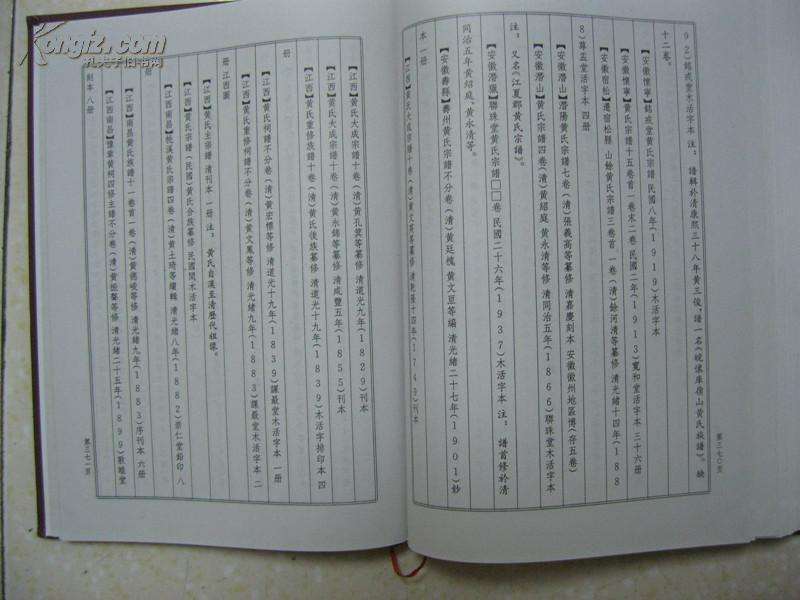 92)銘戒堂木活字本 注: 譜輯於清康熙三十八年黃三俊,譜一名《皖懷庫嶺山黃氏族譜》。缺
十二卷。
【安徽懷寧】銘戒堂黃氏宗譜 民國八年(1919)木活字本
【安徽懷寧】黃氏宗譜十五卷首一卷末二卷 民國二年(1913)寬和堂活字本 三十六冊
【安徽宿松】遷宿松縣 山餘黃氏宗譜三卷首一卷(清)餘河清等纂修 清光緒十四年(188
8)尊孟堂活字本 四冊
【安徽潛山】潛陽黃氏宗譜七卷(清)張義高等纂修 清嘉慶刻本 安徽徽州地區博(存五卷)
【安徽潛山】黃氏宗譜四卷(清)黃紹庭 黃永清等修 清同治五年(1866)聯珠堂木活字本
注: 又名《江夏郡黃氏宗譜》。
【安徽潛嶽】聯珠堂黃氏宗譜□□卷 民國二十六年(1937)木活字本 注: 譜首修於清
同治五年黃紹庭、黃永清等。
【安徽壽縣】壽州黃氏宗譜不分卷(清)黃廷槐 黃文豆等編 清光緒二十七年(1901)鈔
本 一冊
【江西】黃氏大成宗譜十卷(清)黃文英等纂修 清乾隆十四年(1749)刊本
第三七〇頁
【江西】黃氏大成宗譜十卷(清)黃孔箕等纂修 清道光九年(1829)刊本
【江西】黃氏大成宗譜十卷(清)黃永錦等纂修 清咸豐五年(1855)刊本
【江西】黃氏重修族譜十卷(清)黃氏後族纂修 清道光十九年(1839)木活字排印本 四
冊
【江西】黃氏祠譜不分卷(清)黃宏標等修 清道光十九年(1839)課最堂木活字本 一冊
【江西】黃氏重修祠譜不分卷(清)黃文鳳等修 清光緒九年(1883)課最堂木活字本 二
冊 江西圖
【江西】黃氏主宗譜 清刊本 一冊 注: 黃氏自漢至清歷代祖像。
【江西】黃氏宗譜(民國)黃氏合族纂修 民國間木活字本
【江西南昌】桃溪黃氏宗譜四卷(清)黃士琦等續輯 清光緒八年(1882)崇仁堂鉛印 八
冊
【江西南昌】南昌黃氏族譜十一卷首一卷(清)黃德峻等修 清光緒九年(1883)序刊本 六冊
【江西南昌】豫章黃祠四修主譜不分卷(清)黃振鏊等修 清光緒二十五年(1899)敦睦堂
刻本 八冊
第三七一頁
Kongfz.com
孔夫子旧书网